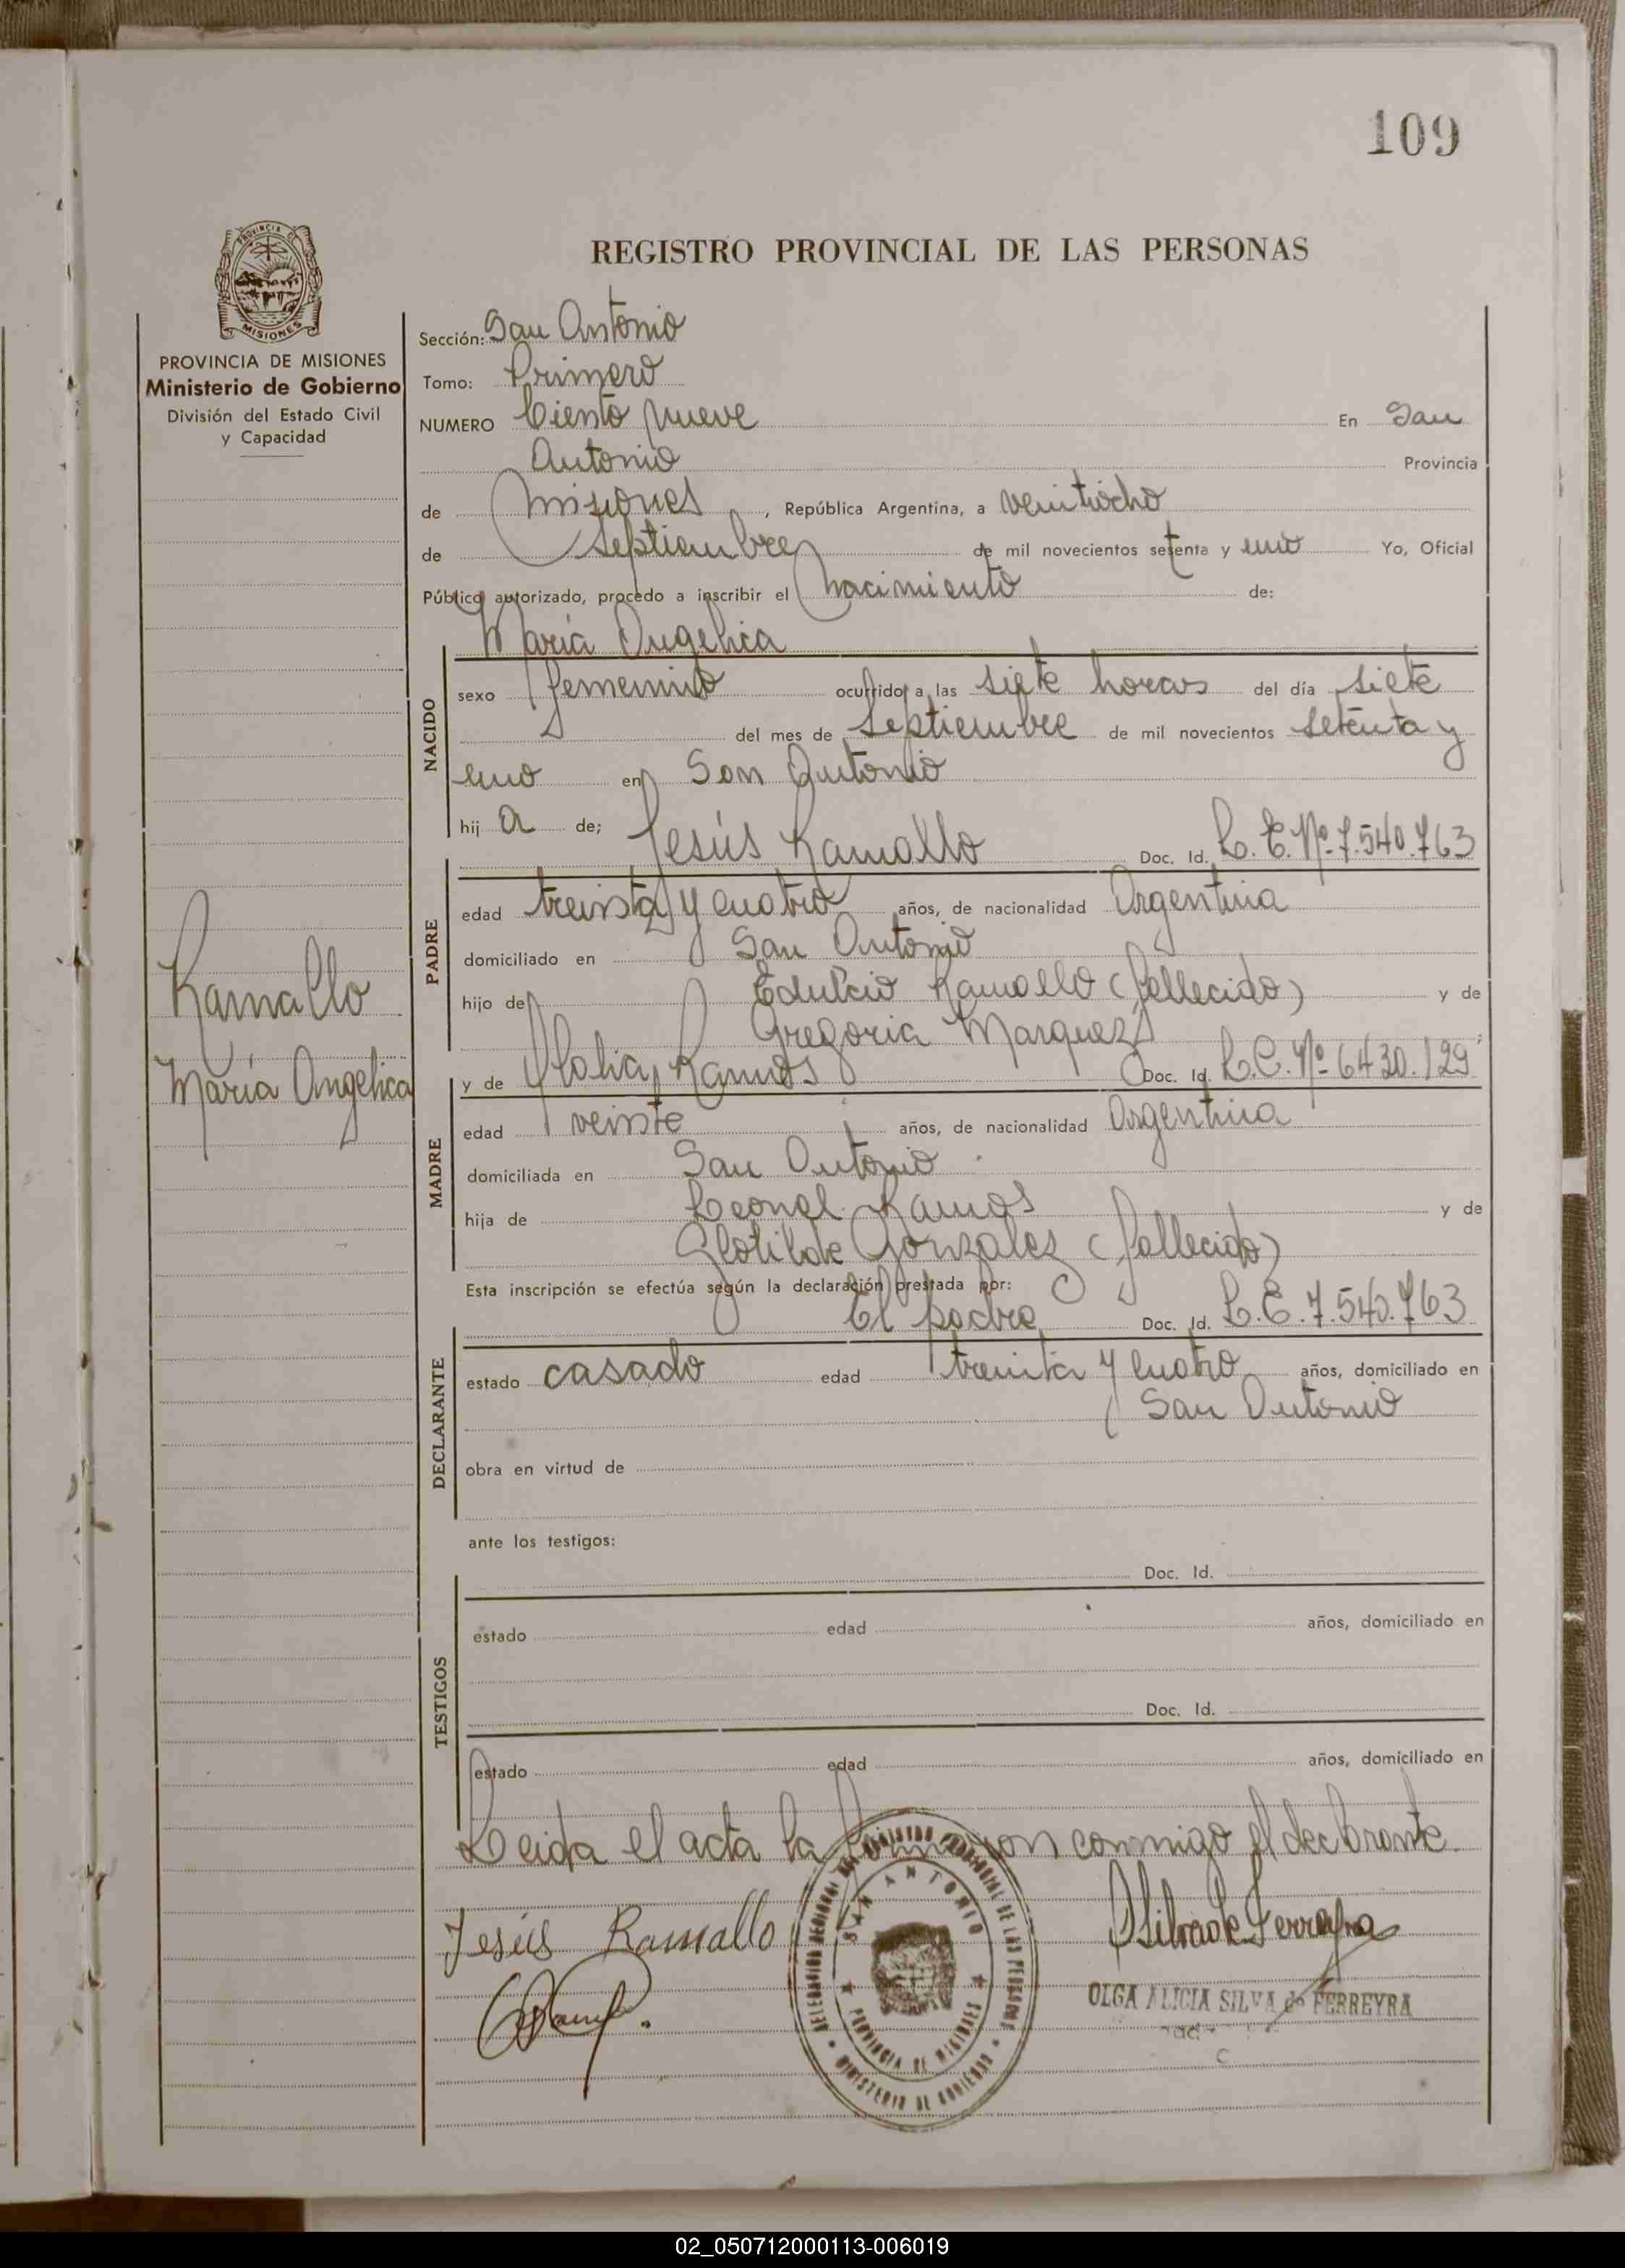 109
PROVINCIA DE
MISIONES
REGISTRO PROVINCIAL DE LAS PERSONAS
PROVINCIA DE MISIONES
Ministerio de Gobierno
División del Estado Civil
y Capacidad
Ramallo
María Angelica
Sección: San Antonio
Tomo: Primero
NUMERO Ciento nueve En San
Antonio Provincia
de Misiones, República Argentina, a veintiocho
de Septiembre de mil novecientos setenta y uno Yo, Oficial
Público autorizado, procedo a inscribir el nacimiento de:
María Angelica
NACIDO
sexo femenino ocurrido a las siete horas del día siete
del mes de Septiembre de mil novecientos setenta y
uno en San Antonio
hij a de; Jesús Ramallo Doc. Id. L. E. Nº 7.540.763
PADRE
edad treinta y cuatro años, de nacionalidad Argentina
domiciliado en San Antonio
hijo de Ramallo (fallecido) y de
Gregoria Marquez
y de Ramos Doc. Id. L.C. Nº 6430.129
MADRE
edad veinte años, de nacionalidad Argentina
domiciliada en San Antonio
hija de Leonel Ramos y de
Clotilde Gonzalez (fallecida)
Esta inscripción se efectúa según la declaración prestada por:
El padre Doc. Id. L.E. 7.540.763
DECLARANTE
estado casado edad treinta y cuatro años, domiciliado en
San Antonio
obra en virtud de
ante los testigos:
Doc. Id.
TESTIGOS
estado edad años, domiciliado en
Doc. Id.
estado edad años, domiciliado en
Leida el acta la firmaron conmigo el declarante
Jesús Ramallo
SAN ANTONIO
PROVINCIA DE MISIONES
MINISTERIO DE GOBIERNO
OLGA ALICIA SILVA de FERREYRA
02_050712000113-006019